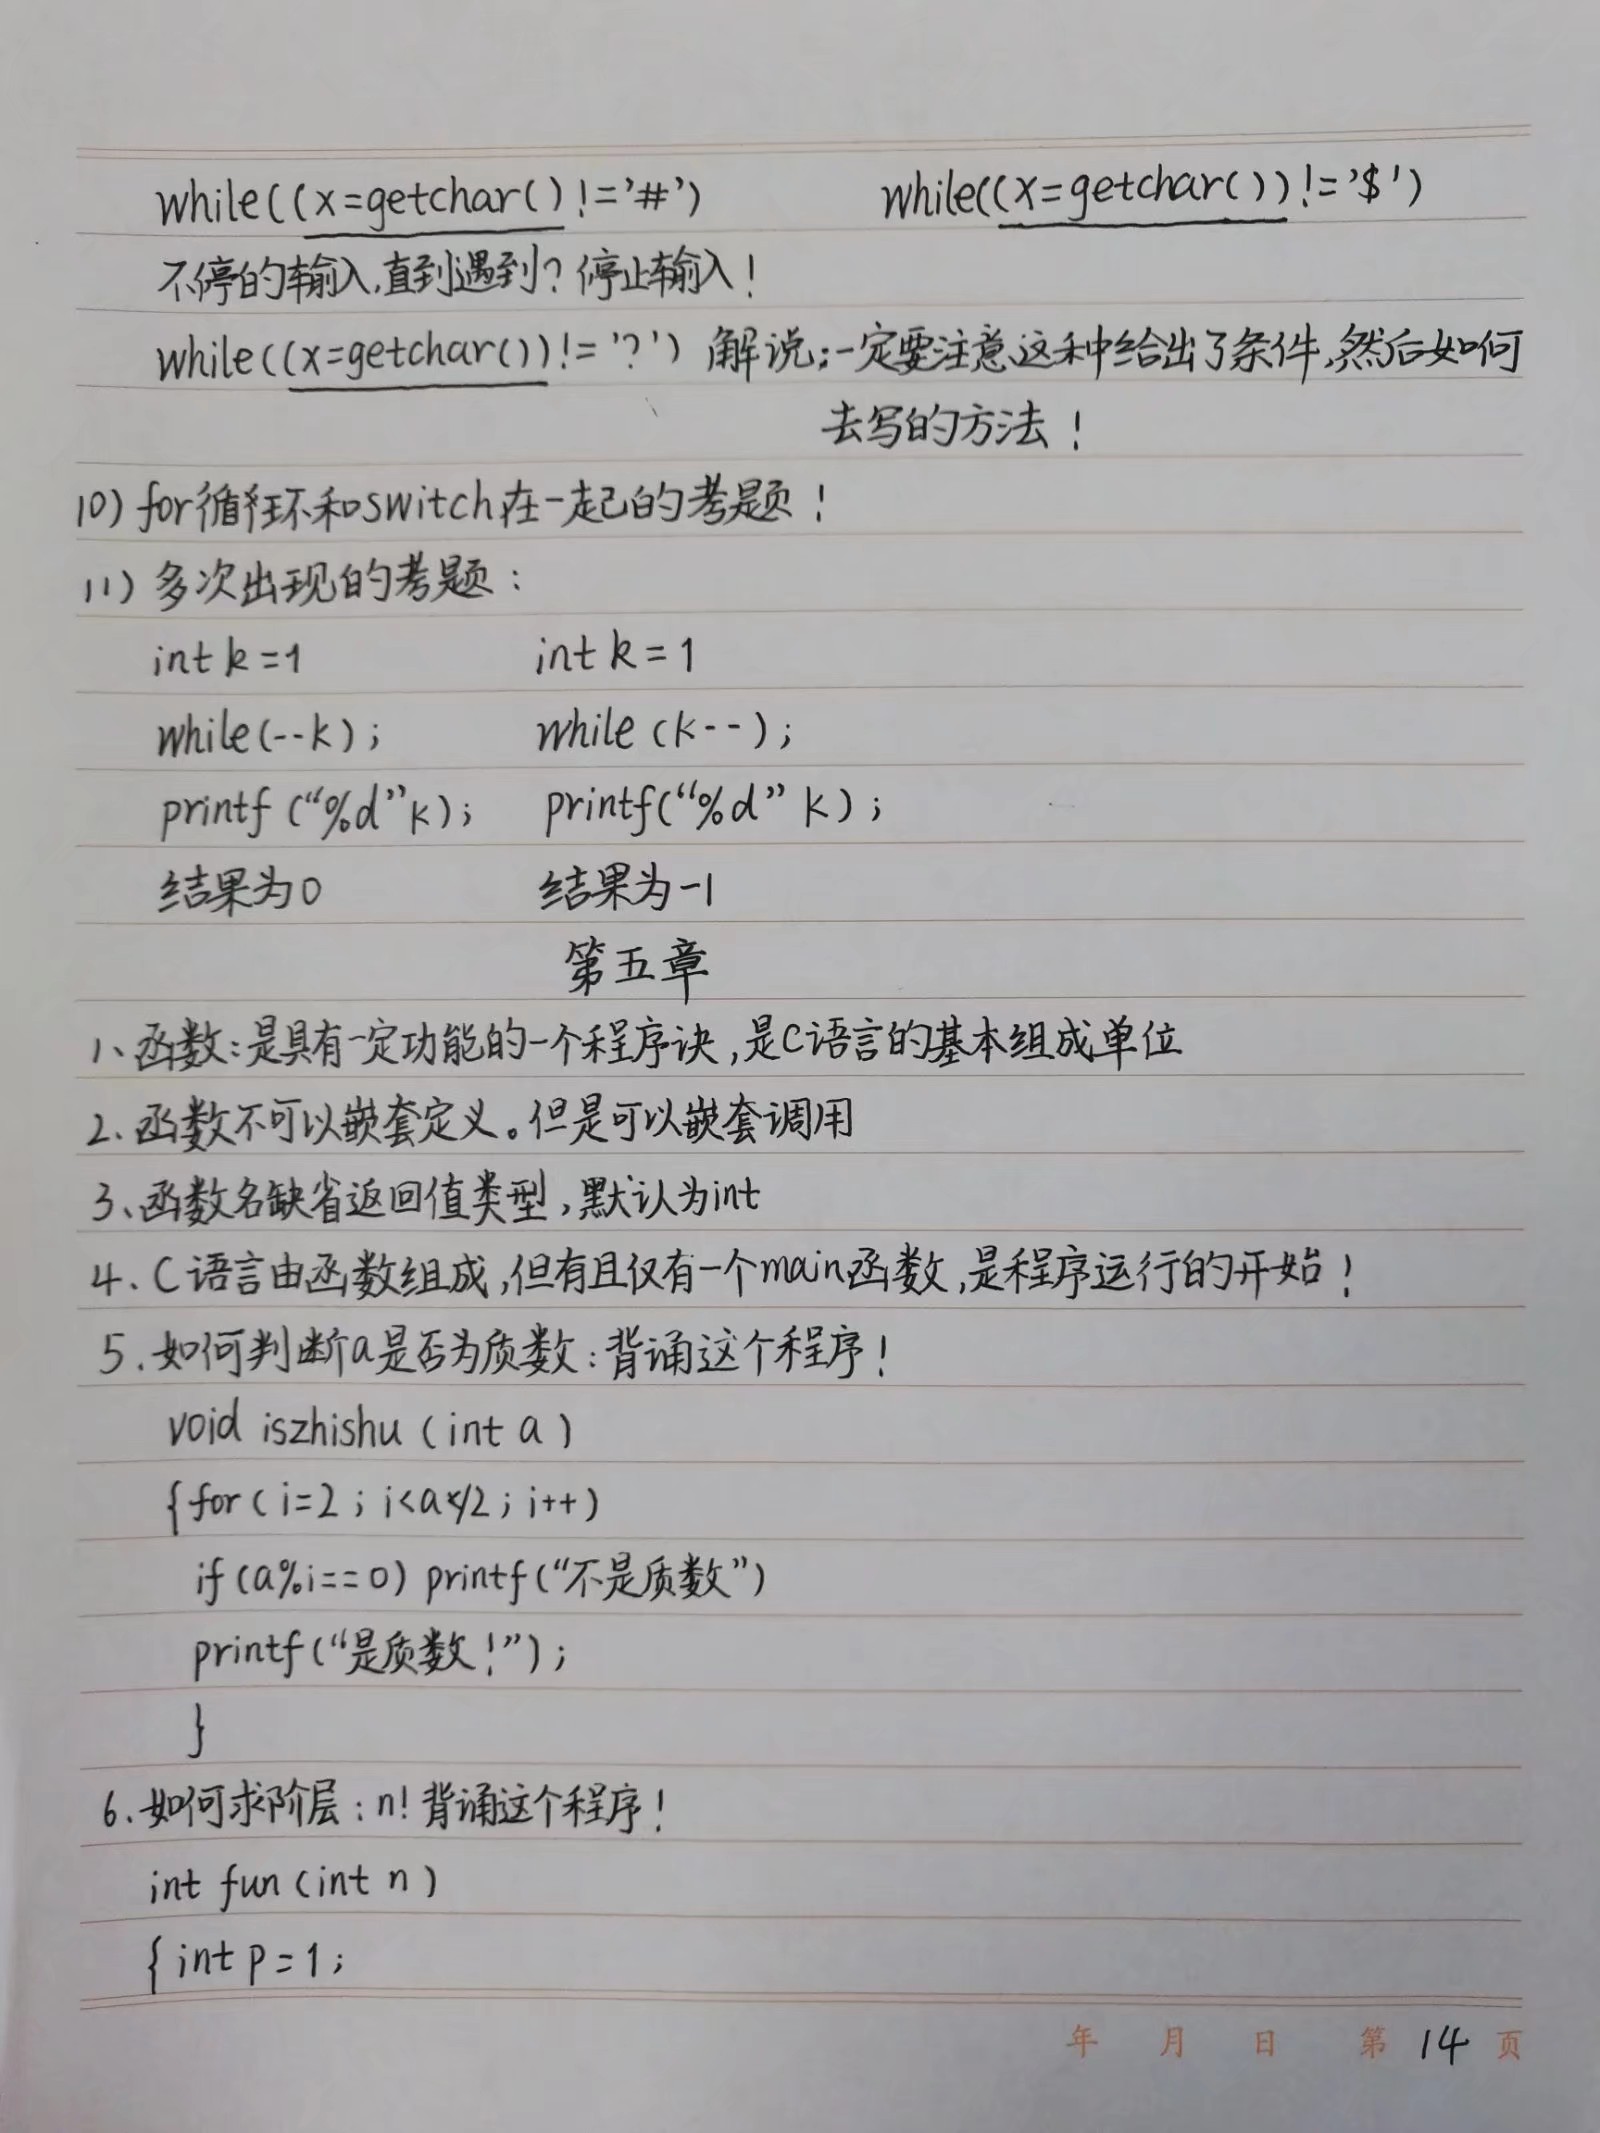 while((x=getchar()!='#') while((x=getchar())!='$')
不停的输入,直到遇到?停止输入!
while((x=getchar())!='?') 解说;一定要注意这种给出了条件,然后如何
去写的方法!
10) for循环和switch在一起的考题!
11) 多次出现的考题:
int k=1 int k=1
while(--k); while(k--);
printf("%d"k); printf("%d"k);
结果为0 结果为-1
第五章
1、函数:是具有一定功能的一个程序诀,是C语言的基本组成单位
2、函数不可以嵌套定义。但是可以嵌套调用
3、函数名缺省返回值类型,默认为int
4、C语言由函数组成,但有且仅有一个main函数,是程序运行的开始!
5.如何判断a是否为质数:背诵这个程序!
void iszhishu(int a)
{for(i=2;i<a/2;i++)
if(a%i==0)printf("不是质数")
printf("是质数!");
}
6.如何求阶层:n!背诵这个程序!
int fun(int n)
{int p=1;
年 月 日 第 14 页